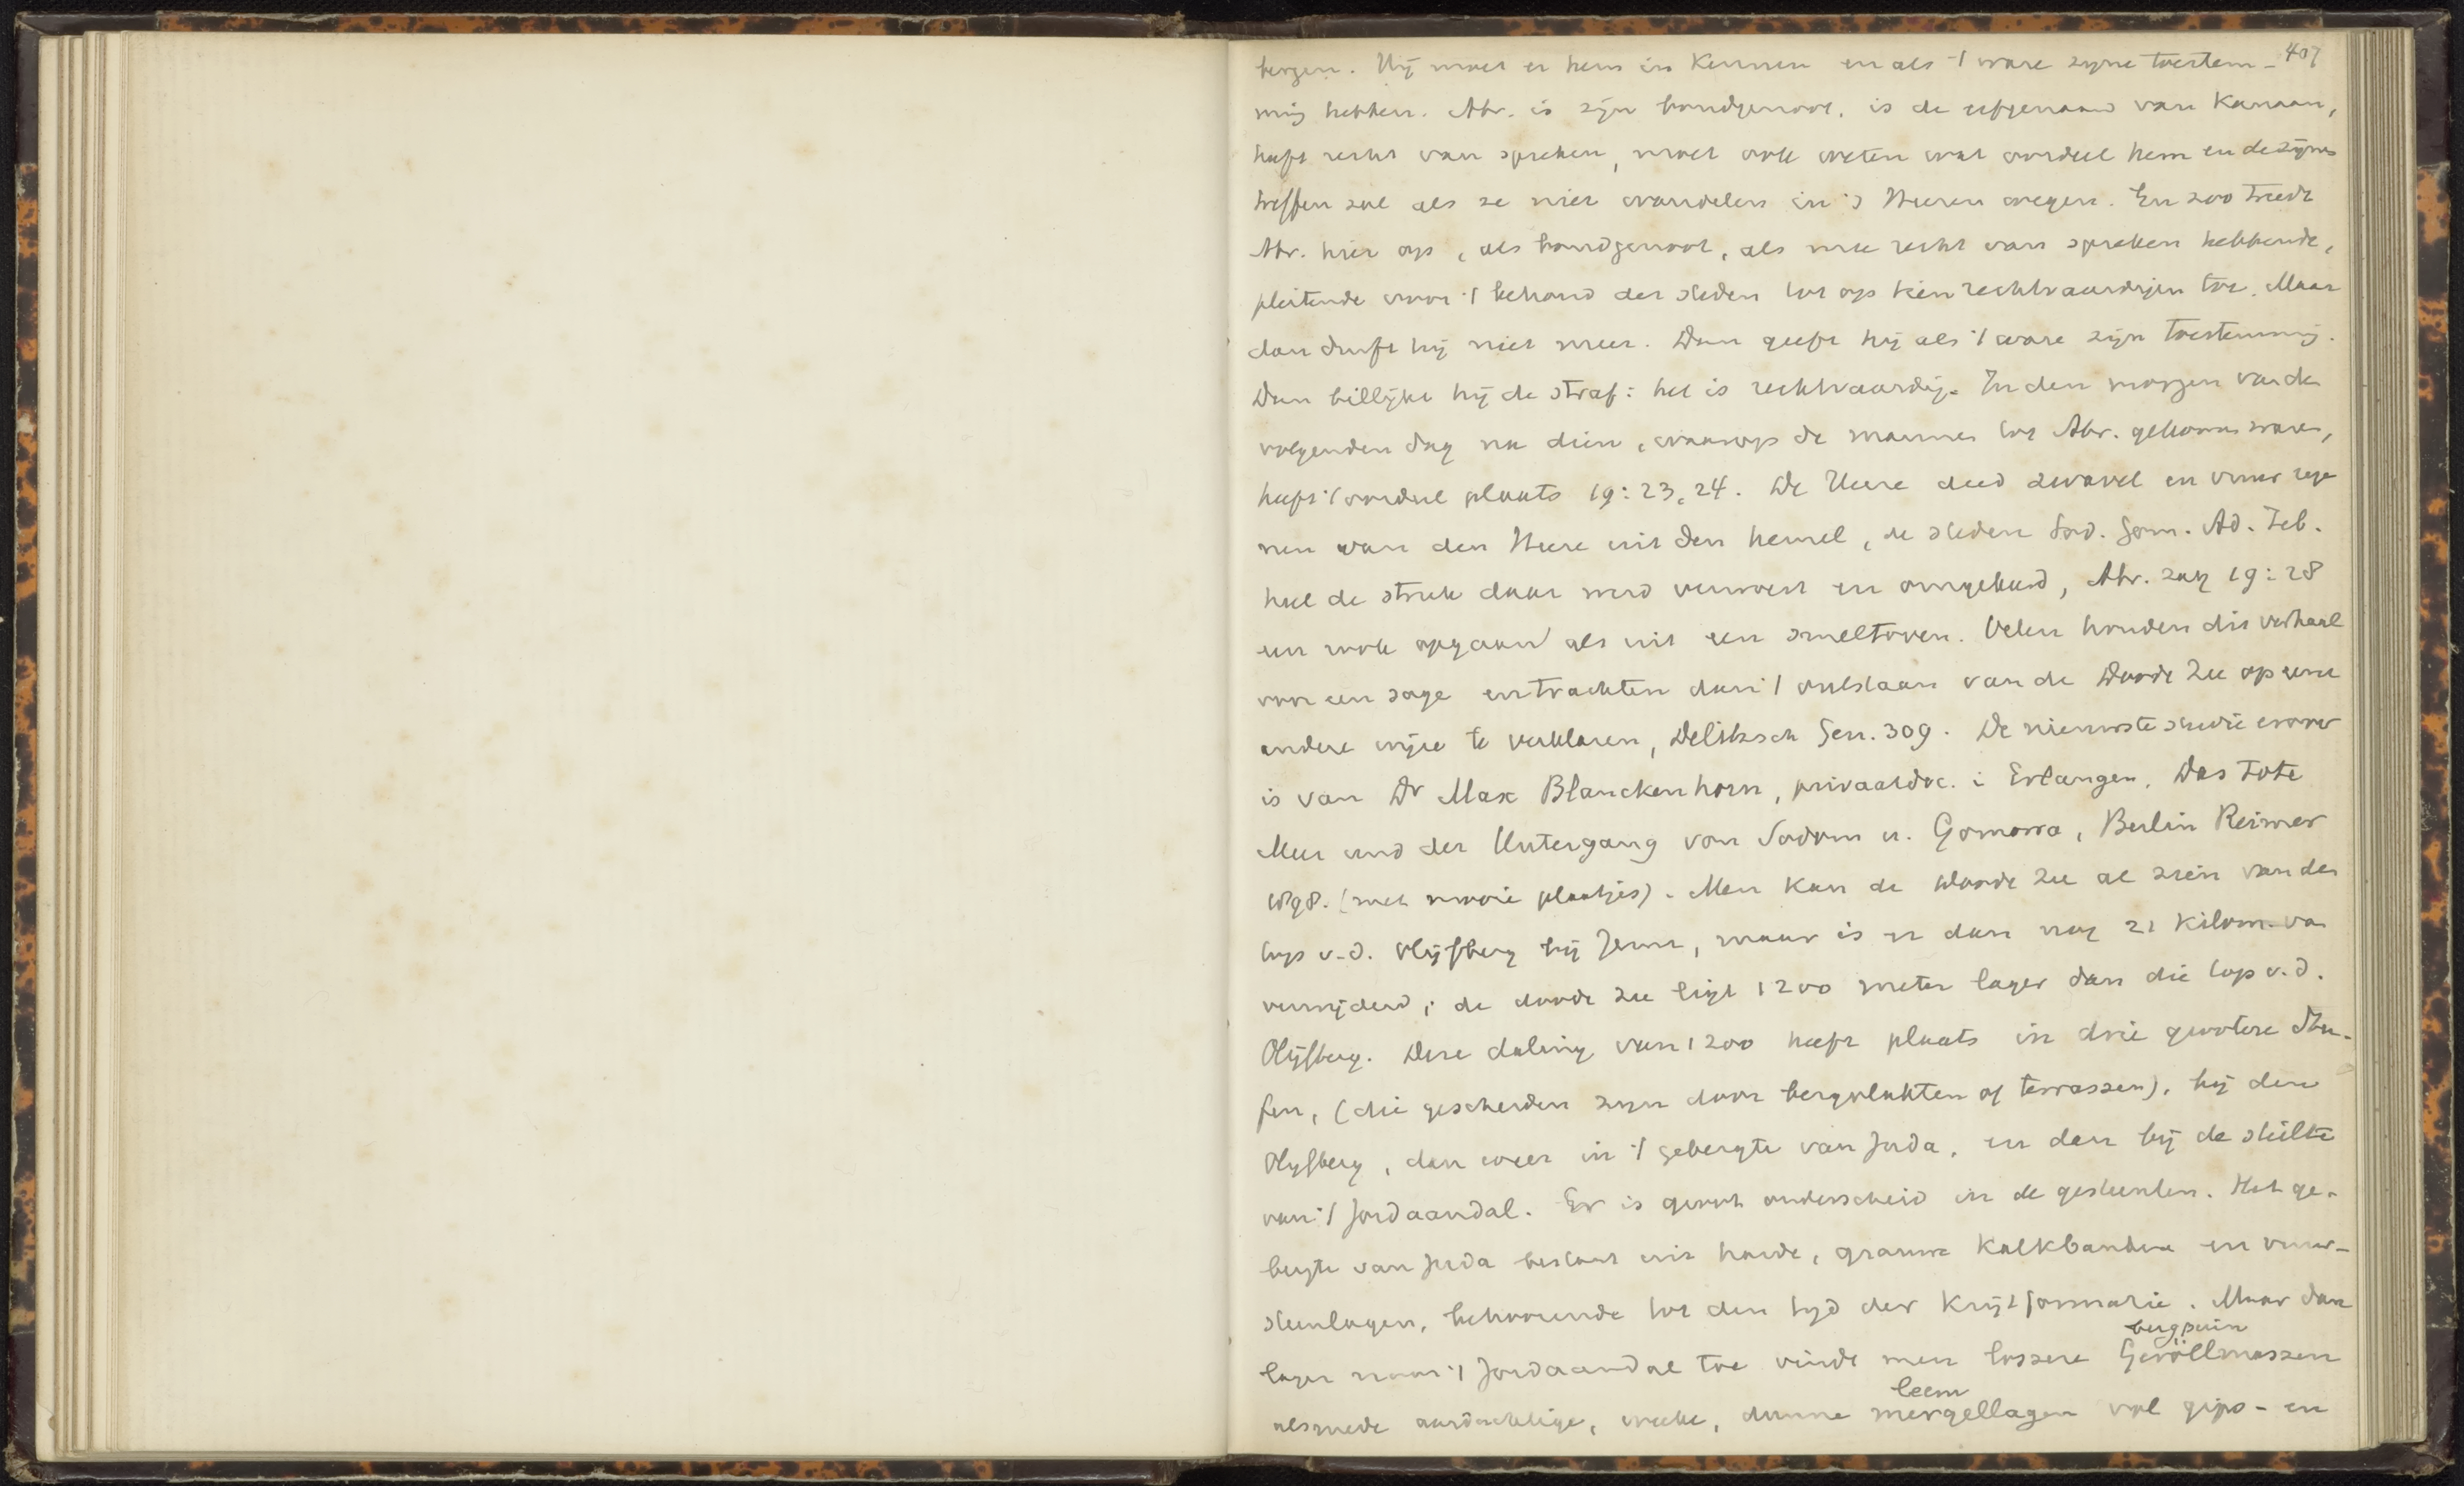 407
bergen. Hij moet er hem in kennen en als 't ware zyne toestem-
ming hebben. Abr. is zijn bondgenoot, is de erfgenaam van Kanaan,
heeft recht van spreken, moet ook weten wat oordeel hem en de zijnen
treffen zal als ze niet wandelen in 's Heeren wegen. En zoo treedt
Abr. hier op, als bondgenoot, als recht van spreken hebbende,
pleitende voor 't behoud der steden tot op tien rechtvaardigen toe. Maar
dan durft hij niet meer. Dan geeft hij als 't ware zijn toestemming.
Dan billijkt hij de straf: het is rechtvaardig. In den morgen van den
volgenden dag na dien, waarop de mannen tot Abr. gekomen waren,
heeft 't oordeel plaats 19:23, 24. De Heere deed zwavel en vuur rege
nen van den Heere uit den hemel, de steden Sod. Gom. Ad. Zeb.
heel de streek daar werd verwoest en omgekeerd, Abr. zag 19:28
een rook opgaan als uit een smeltoven. Velen houden dit verhaal
voor een sage en trachten dan 't ontstaan van de Doode Zee op eene
andere wijze te verklaren, Delitzsch Gen. 309. De nieuwste studie erover
is van Dr Max Blanckenhorn, privaatdoc. i Erlangen, Das Tote
Meer und der Untergang von Sodom u. Gomorra, Berlin Reimer
1898. (met mooie plaatjes). Men kan de Doode Zee al zien van den
top v. d. Olijfberg bij Jeruz, maar is er dan nog 21 kilom. van
verwijderd; de doode zee ligt 1200 meter lager dan die top v. d.
Olijfberg. Deze daling van 1200 heeft plaats in drie grootere Stu-
fen, (die gescheiden zyn door bergvlakten of terrassen), bij den
Olyfberg, dan weer in 't gebergte van Juda, en dan bij de steilte
van 't Jordaandal. Er is groot onderscheid in de gesteenten. Het ge-
bergte van Juda bestaat uit harde, grauwe kalkbanken en vuur-
steenlagen, behoorende tot den tyd der Krijtformatie. Maar dan
bergpuin
lager naar 't Jordaandal toe vindt men lossere Geröllmassen
leem
alsmede aardachtige, weeke, dunne mergellagen vol gips- en